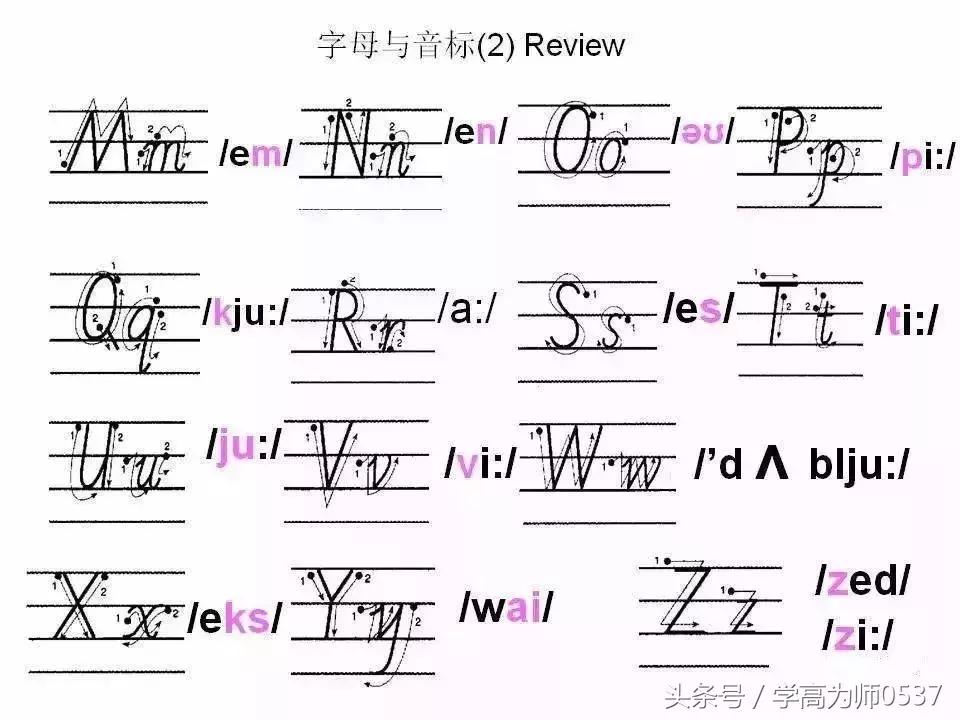 字母与音标(2) Review
Mm /em/ Nn /en/ Oo /əʊ/ Pp /pi:/
Qq /kju:/ Rr /a:/ Ss /es/ Tt /ti:/
Uu /ju:/ Vv /vi:/ Ww /’d Λ blju:/
Xx /eks/ Yy /wai/ Zz /zed/
/zi:/
头条号 / 学高为师0537